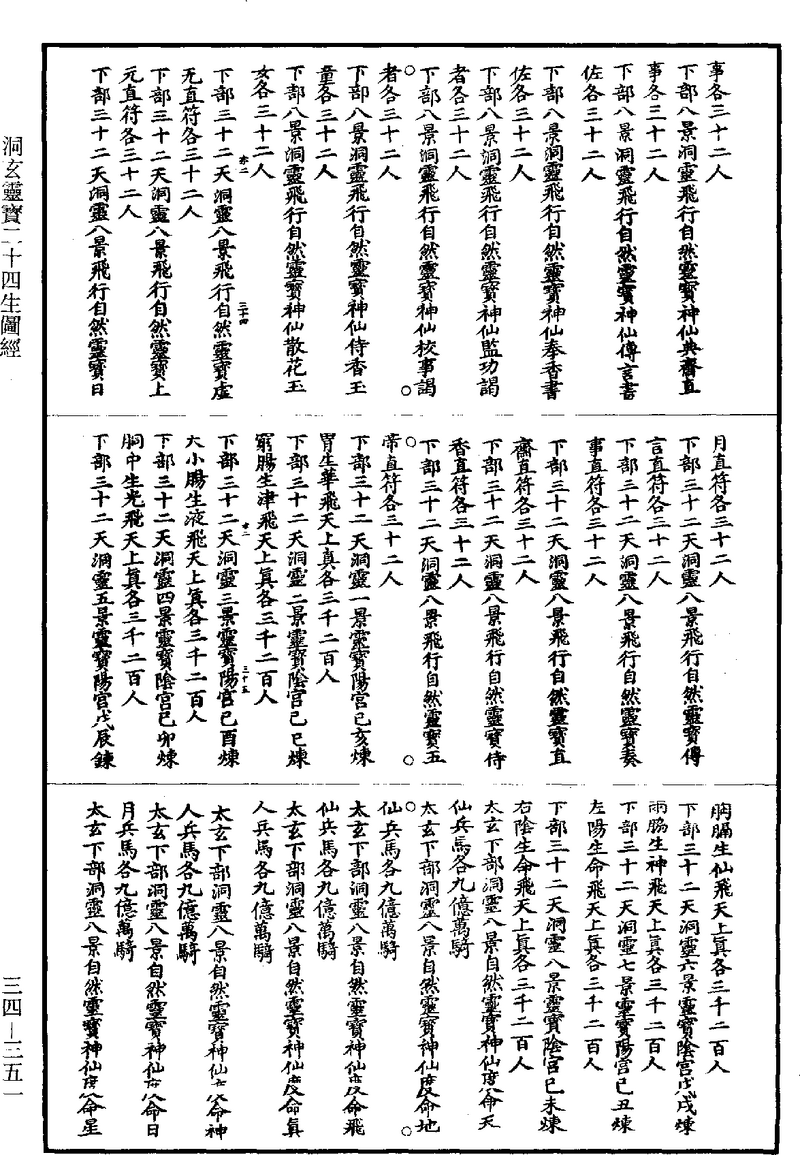 事各三十二人
下部八景洞靈飛行自然靈寶神仙典齋直
事各三十二人
下部八景洞靈飛行自然靈寶神仙傳言書
佐各三十二人
下部八景洞靈飛行自然靈寶神仙奉香書
佐各三十二人
下部八景洞靈飛行自然靈寶神仙監功謁
者各三十二人
下部八景洞靈飛行自然靈寶神仙校事謁
者各三十二人
下部八景洞靈飛行自然靈寶神仙侍香玉
童各三十二人
下部八景洞靈飛行自然靈寶神仙散花玉
女各三十二人
下部三十二天洞靈八景飛行自然靈寶虛
无直符各三十二人
下部三十二天洞靈八景飛行自然靈寶上
元直符各三十二人
下部三十二天洞靈八景飛行自然靈寶日
月直符各三十二人
下部三十二天洞靈八景飛行自然靈寶傳
言直符各三十二人
下部三十二天洞靈八景飛行自然靈寶奏
事直符各三十二人
下部三十二天洞靈八景飛行自然靈寶直
齋直符各三十二人
下部三十二天洞靈八景飛行自然靈寶侍
香直符各三十二人
下部三十二天洞靈八景飛行自然靈寶五
帝直符各三十二人
下部三十二天洞靈一景靈寶陽宮己亥煉
胃生華飛天上真各三千二百人
下部三十二天洞靈二景靈寶陰宮己巳煉
窮腸生津飛天上真各三千二百人
下部三十二天洞靈三景靈寶陽宮己酉煉
大小腸生液飛天上真各三千二百人
下部三十二天洞靈四景靈寶陰宮己卯煉
胴中生光飛天上真各三千二百人
下部三十二天洞靈五景靈寶陽宮戊辰鍊
胸膈生仙飛天上真各三千二百人
下部三十二天洞靈六景靈寶陰宮戊戌煉
兩脇生神飛天上真各三千二百人
下部三十二天洞靈七景靈寶陽宮己丑煉
左陽生命飛天上真各三千二百人
下部三十二天洞靈八景靈寶陰宮己未煉
右陰生命飛天上真各三千二百人
太玄下部洞靈八景自然靈寶神仙度命天
仙兵馬各九億萬騎
太玄下部洞靈八景自然靈寶神仙度命地
仙兵馬各九億萬騎
太玄下部洞靈八景自然靈寶神仙度命飛
仙兵馬各九億萬騎
太玄下部洞靈八景自然靈寶神仙度命真
人兵馬各九億萬騎
太玄下部洞靈八景自然靈寶神仙度命神
人兵馬各九億萬騎
太玄下部洞靈八景自然靈寶神仙度命日
月兵馬各九億萬騎
太玄下部洞靈八景自然靈寶神仙度命星
三十四
三十五
洞玄靈寶二十四生圖經
三四—三五一